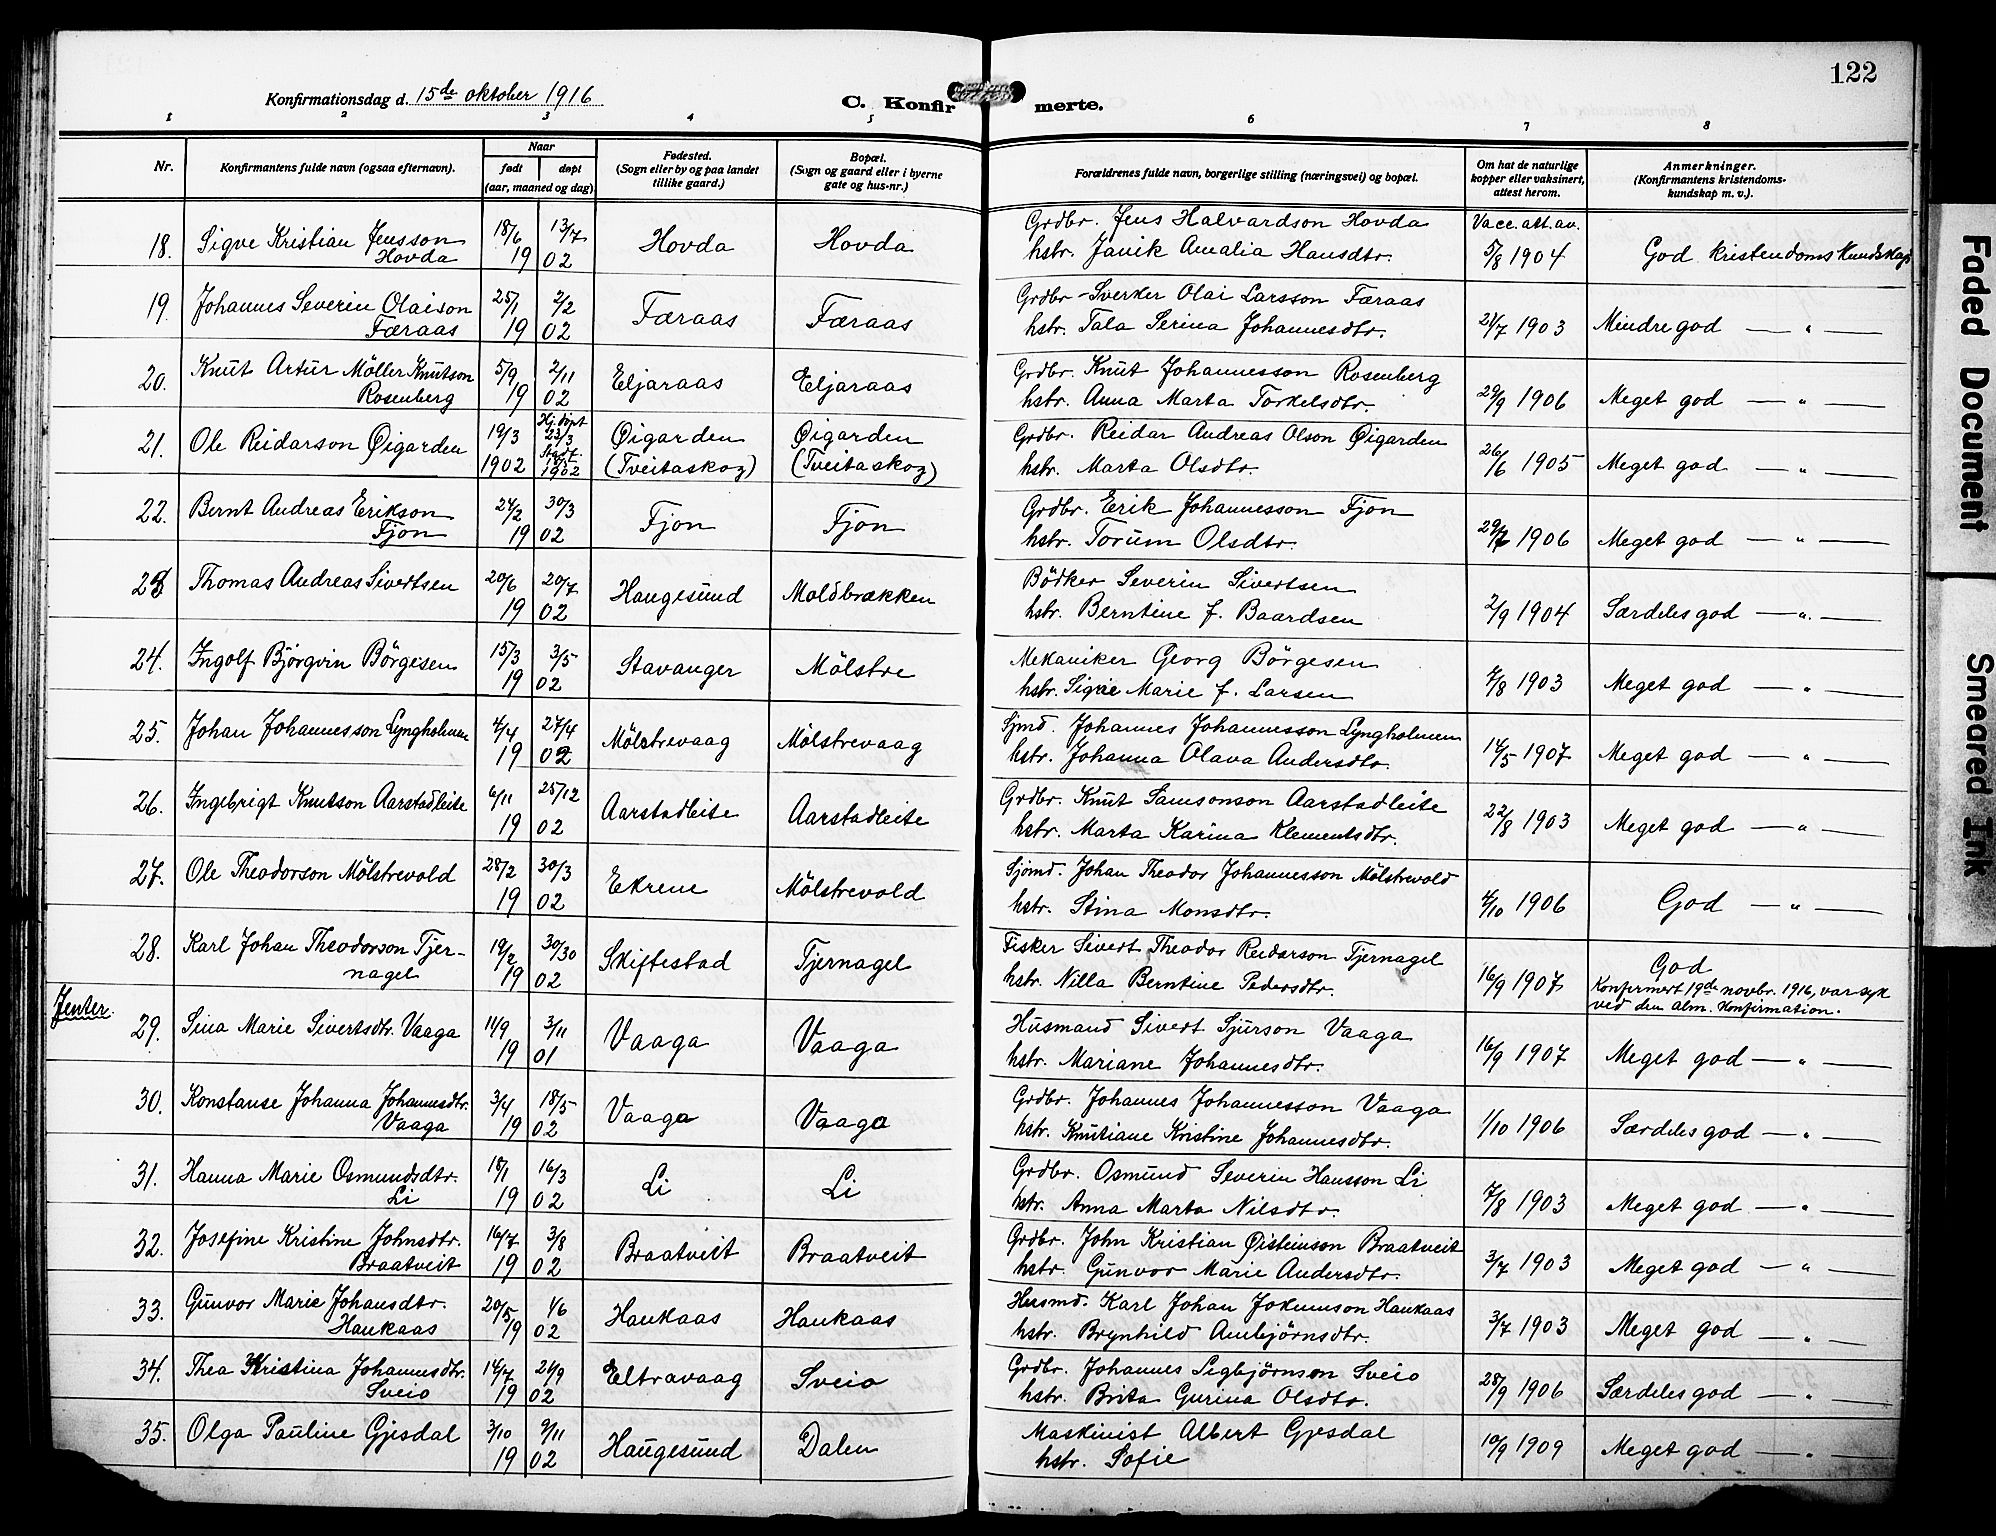 122
Konfirmationsdag d. 15de oktober 1916
C. Konfirmerte.
1 2 3 4 5 6 7 8
Nr. Konfirmantens fulde navn (ogsaa efternavn). Naar født døpt (aar, maaned og dag) Fødested. (Sogn eller by og paa landet tillike gaard.) Bopæl. (Sogn og gaard eller i byerne gate og hus-nr.) Forældrenes fulde navn, borgerlige stilling (næringsvei) og bopæl. Om hat de naturlige kopper eller vaksinert, attest herom. Anmerkninger. (Konfirmantens kristendomskundskap m. v.).
18. Sigve Kristian Jensson Hovda 18/6 13/7 1902 Hovda Hovda Grdbr. Jens Halvardson Hovda hstr. Janik Amalia Hansdtr. Vacc. att. av. 5/8 1904 God kristendomskundskap
19. Johannes Severin Olaison Færaas 25/1 2/2 1902 Færaas Færaas Grdbr - Sverker Olai Larsson Færaas hstr. Tala Serina Johannesdtr. 21/7 1903 Mindre god — " —
20. Knut Artur Möller Knutson Rosenberg 5/9 2/11 1902 Eljaraas Eljaraas Grdbr. Knut Johannesson Rosenberg hstr. Anna Marta Torkelsdtr. 29/9 1906 Meget god — " —
21. Ole Reidarson Øigarden 19/3 1902 Hj. döpt 23/3 1902 Øigarden (Tveitaskog) Øigarden (Tveitaskog) Grdbr. Reidar Andreas Olson Øigarden hstr. Marta Olsdtr. 26/6 1905 Meget god — " —
22. Bernt Andreas Erikson Fjon 24/2 30/3 1902 Fjon Fjon Grdbr. Erik Johannesson Fjon hstr. Torum Olsdtr. 1906 Meget god — " —
23 Thomas Andreas Sivertsen 20/6 20/7 1902 Haugesund Moldbrækken Bödker Severin Sivertsen hstr. Berntine f. Baardsen 2/9 1904 Særdeles god — " —
24. Ingolf Björgvin Börgesen 15/3 3/5 1902 Stavanger Mölstre Mekaniker Georg Börgesen hstr. Signe Marie f. Larsen 7/8 1903 Meget god — " —
25. Johan Johannesson Lyngholmen 4/4 27/4 1902 Mölstrevaag Mölstrevaag Sjmd. Johannes Johannesson Lyngholmen hstr. Johanna Olava Andersdtr. 14/5 1907 Meget god — " —
26. Ingebrigt Knutson Aarstadleite 6/11 25/12 1902 Aarstadleite Aarstadleite Grdbr. Knut Samsonson Aarstadleite hstr. Marta Karina Klementsdtr. 22/8 1903 Meget god — " —
27. Ole Theodorson Mölstrevold 28/2 30/3 1902 Ekrene Mölstrevold Sjömd. Johan Theodor Johannesson Mölstrevold hstr. Stina Monsdtr. 4/10 1906 God — " —
28. Karl Johan Theodorson Tjernagel 19/2 30/30 1902 Skiftestad Tjernagel Fisker Sivert Theodor Reidarson Tjernagel hstr. Nilla Berntine Pedersdtr. 16/9 1907 God Konfirmert 19de novbr. 1916, var syk ved den alm. Konfirmation.
Jenter.
29. Sina Marie Sivertsdtr. Vaaga 14/9 3/11 1901 Vaaga Vaaga Husmand Sivert Sjurson Vaaga hstr. Mariane Johannesdtr. 16/9 1907 Meget god — " —
30. Konstanse Johanna Johannesdtr. Vaaga 3/4 18/5 1902 Vaaga Vaaga Grdbr. Johannes Johannesson Vaaga hstr. Knutiane Kristine Johannesdtr. 1/10 1906 Særdeles god — " —
31. Hanna Marie Osmundsdtr. Li 18/1 16/3 1902 Li Li Grdbr. Osmund Severin Hansson Li hstr. Anna Marta Nilsdtr. 7/8 1903 Meget god — " —
32. Josefine Kristine Johnsdtr. Braatveit 16/7 3/8 1902 Braatveit Braatveit Grdbr. John Kristian Øisteinson Braatveit hstr. Gunvor Marie Andersdtr. 3/7 1903 Meget god — " —
33. Gunvor Marie Johansdtr. Haukaas 20/5 1/6 1902 Haukaas Haukaas Husmd. Karl Johan Jokumson Haukaas hstr. Brynhild Ambjörnsdtr. 3/7 1903 Meget god — " —
34. Thea Kristina Johannesdtr. Sveio 14/7 21/9 1902 Eltravaag Sveio Grdbr. Johannes Sigbjörnson Sveio hstr. Brita Gurina Olsdtr. 28/9 1906 Særdeles god — " —
35. Olga Pauline Gjesdal 3/10 9/11 1902 Haugesund Dalen Maskinist Albert Gjesdal hstr. Sofie 10/9 1909 Meget god — " —
Faded Document
Smeared Ink